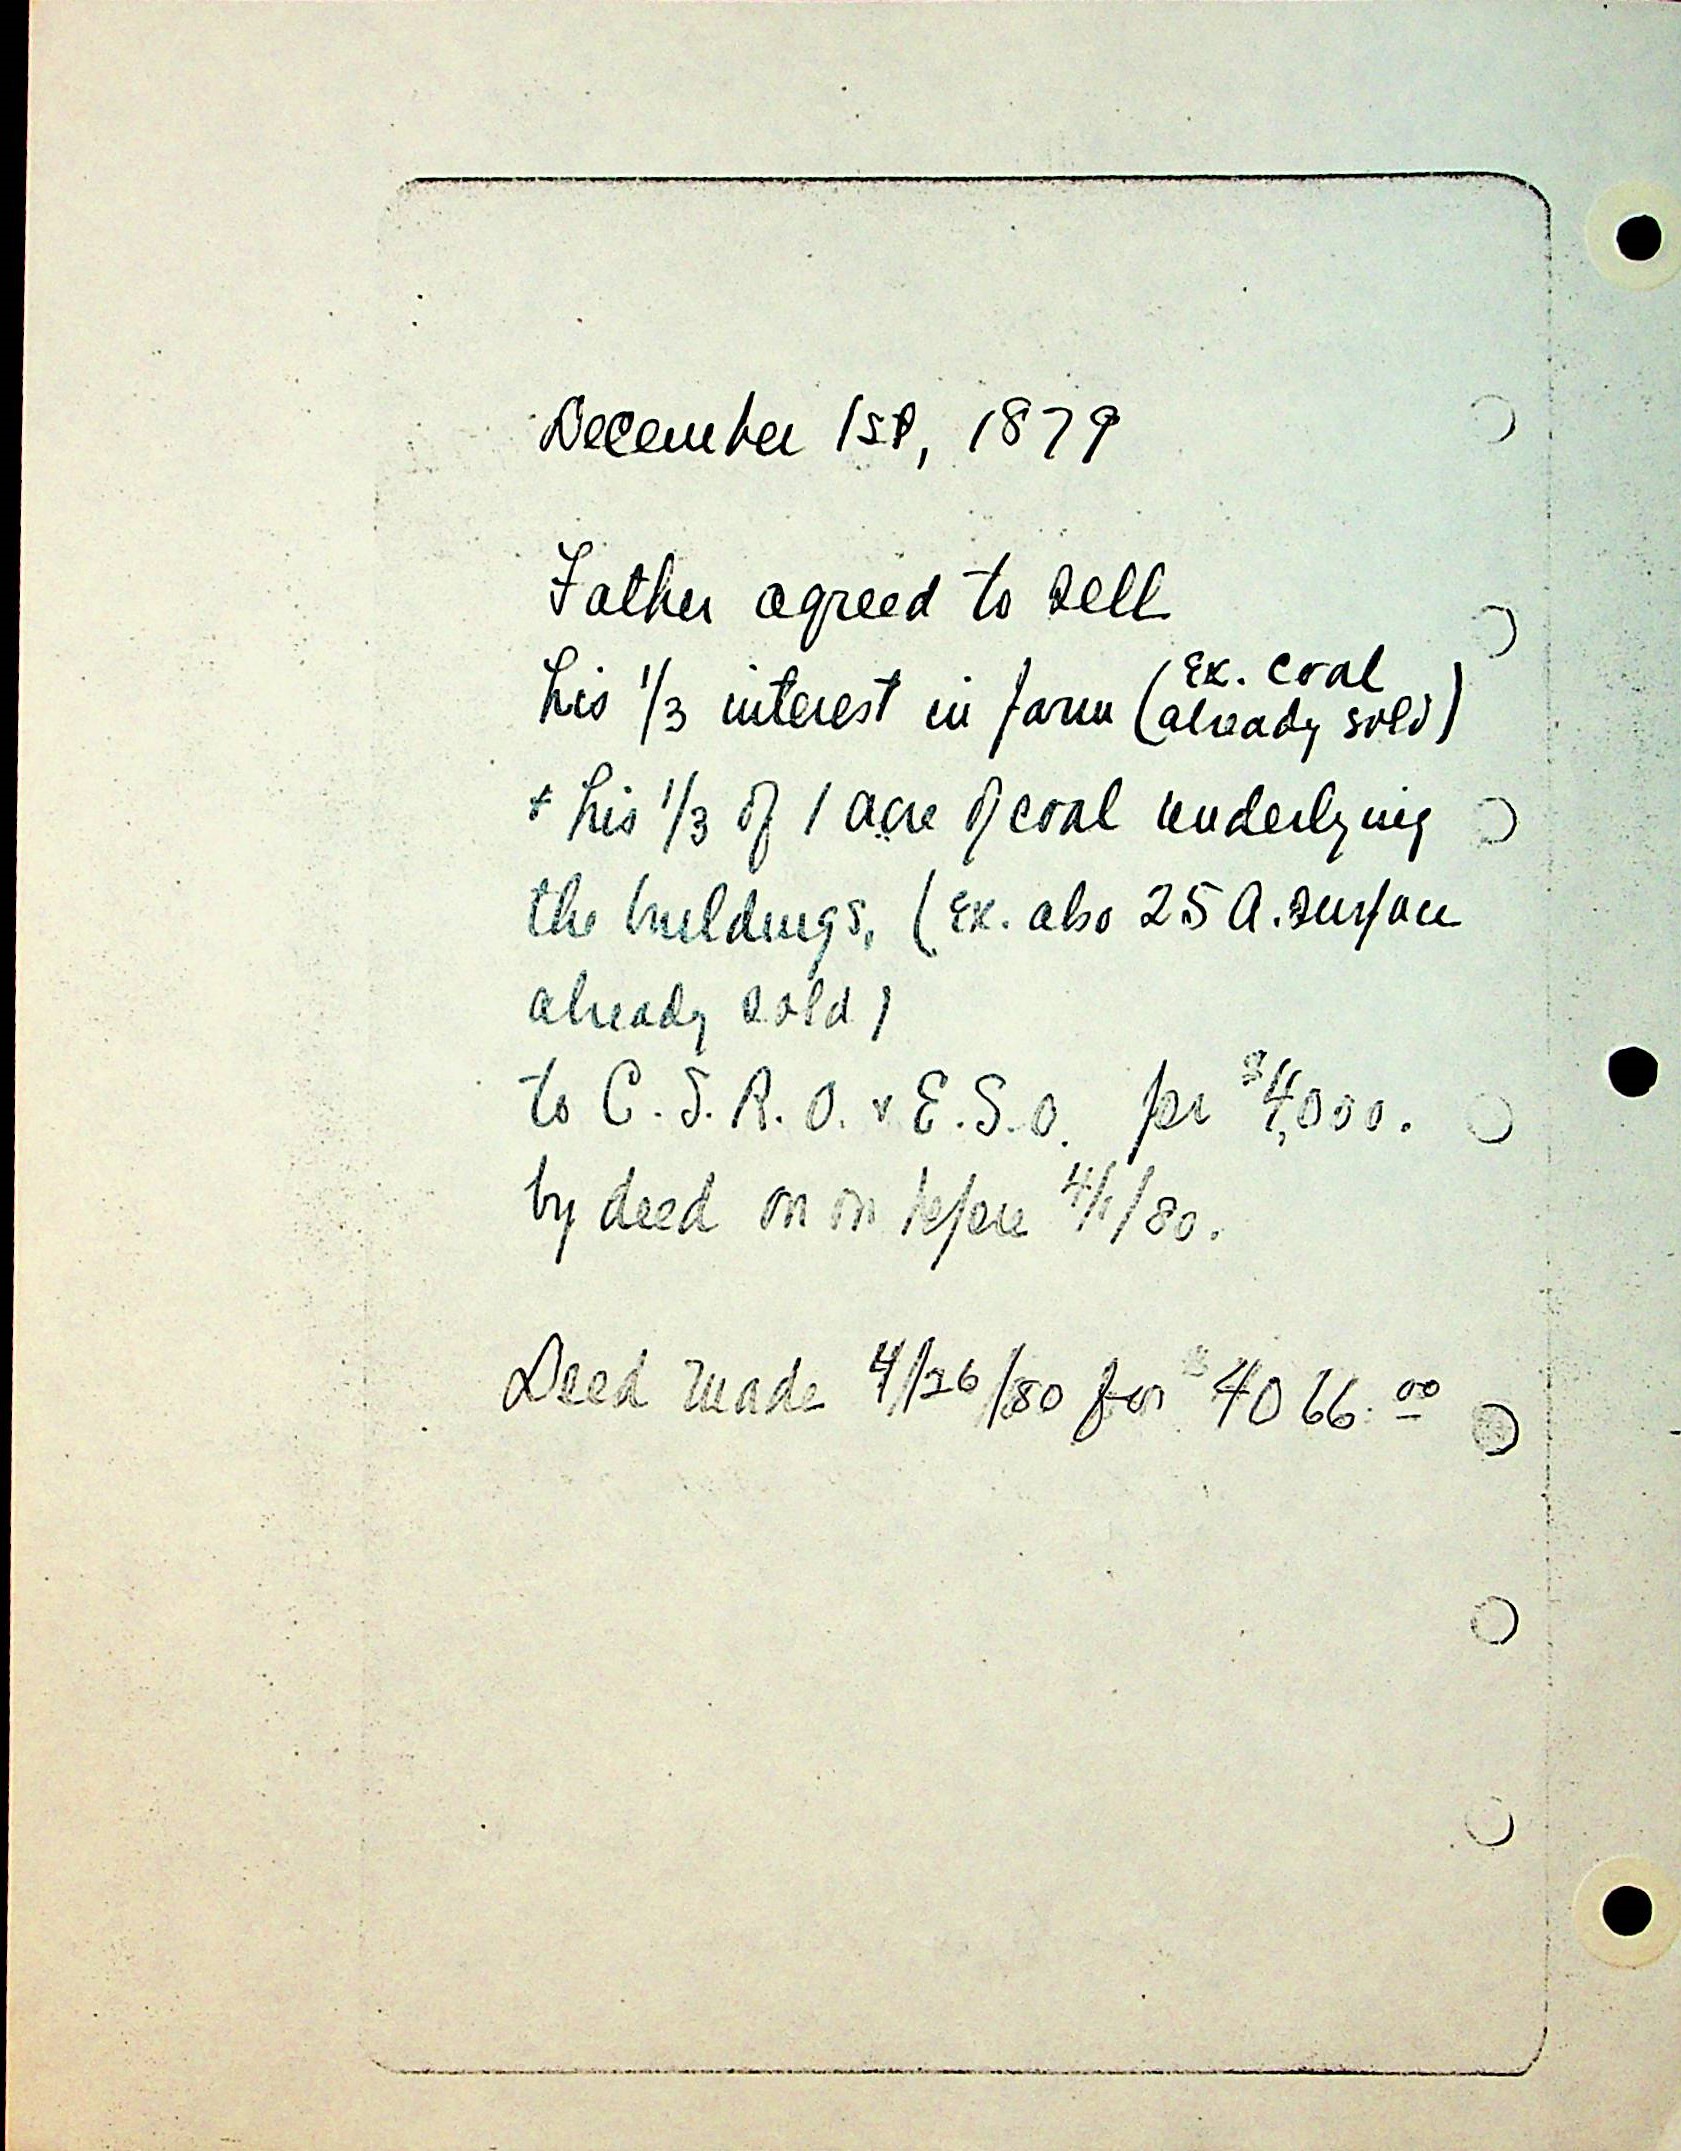 December 1st, 1879
Father agreed to sell
his 1/3 interest in farm (Ex. coal already sold)
+ his 1/3 of 1 acre of coal underlying
the buildings, (Ex. also 25 A. surface
already sold)
to C. S. R. O. & E. S. O. for $4,000.
by deed on or before 4/1/80.
Deed made 4/26/80 for $4066.00